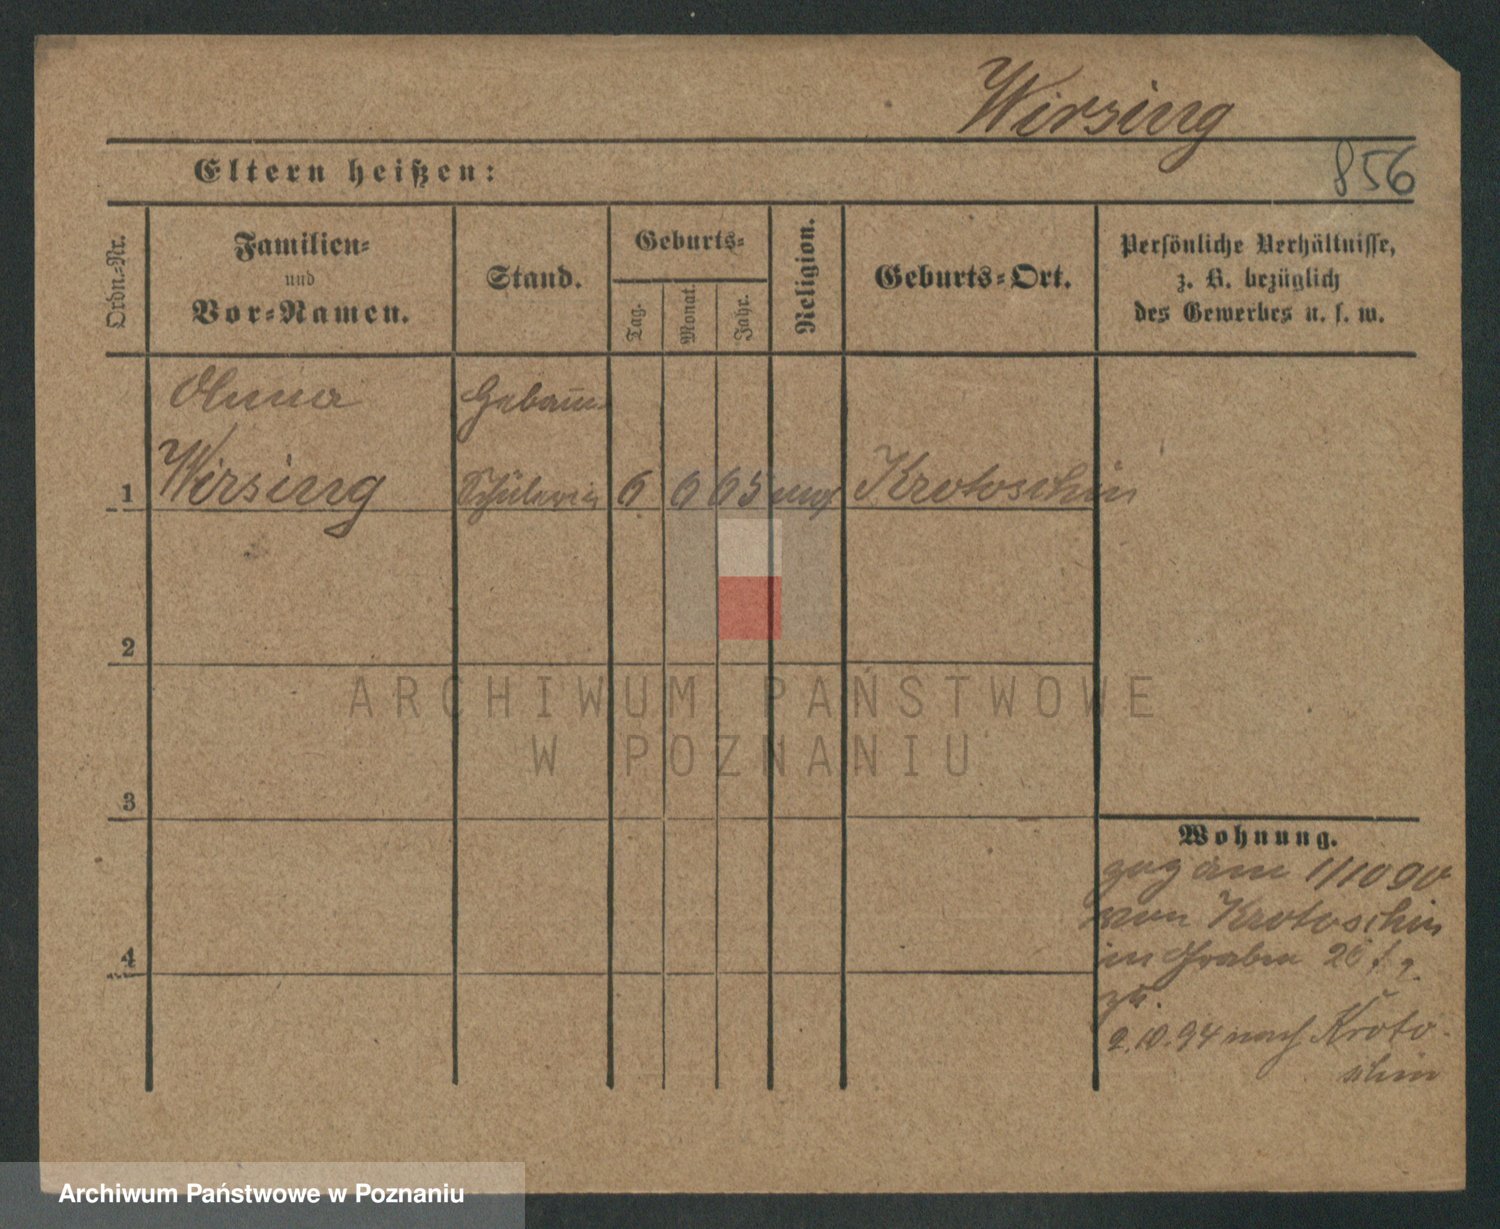 Wirsing
Eltern heißen:
856
Ordn.-Nr.
Familien-
und
Vor-Namen.
Stand.
Geburts-
Tag.
Monat.
Jahr.
Religion.
Geburts-Ort.
Persönliche Verhältnisse,
z. B. bezüglich
des Gewerbes u. s. w.
Anna
1 Wirsing
Schülerin
6 6 65
Krotoschin
2
3
4
Wohnung.
am 1/10 90
von Krotoschin
in Graben
zu.
2.10.94 nach Kroto-
schin
ARCHIWUM PAŃSTWOWE
W POZNANIU
Archiwum Państwowe w Poznaniu